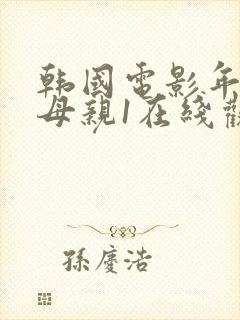 韩國電影年
母親1在綫觀
孫慶浩